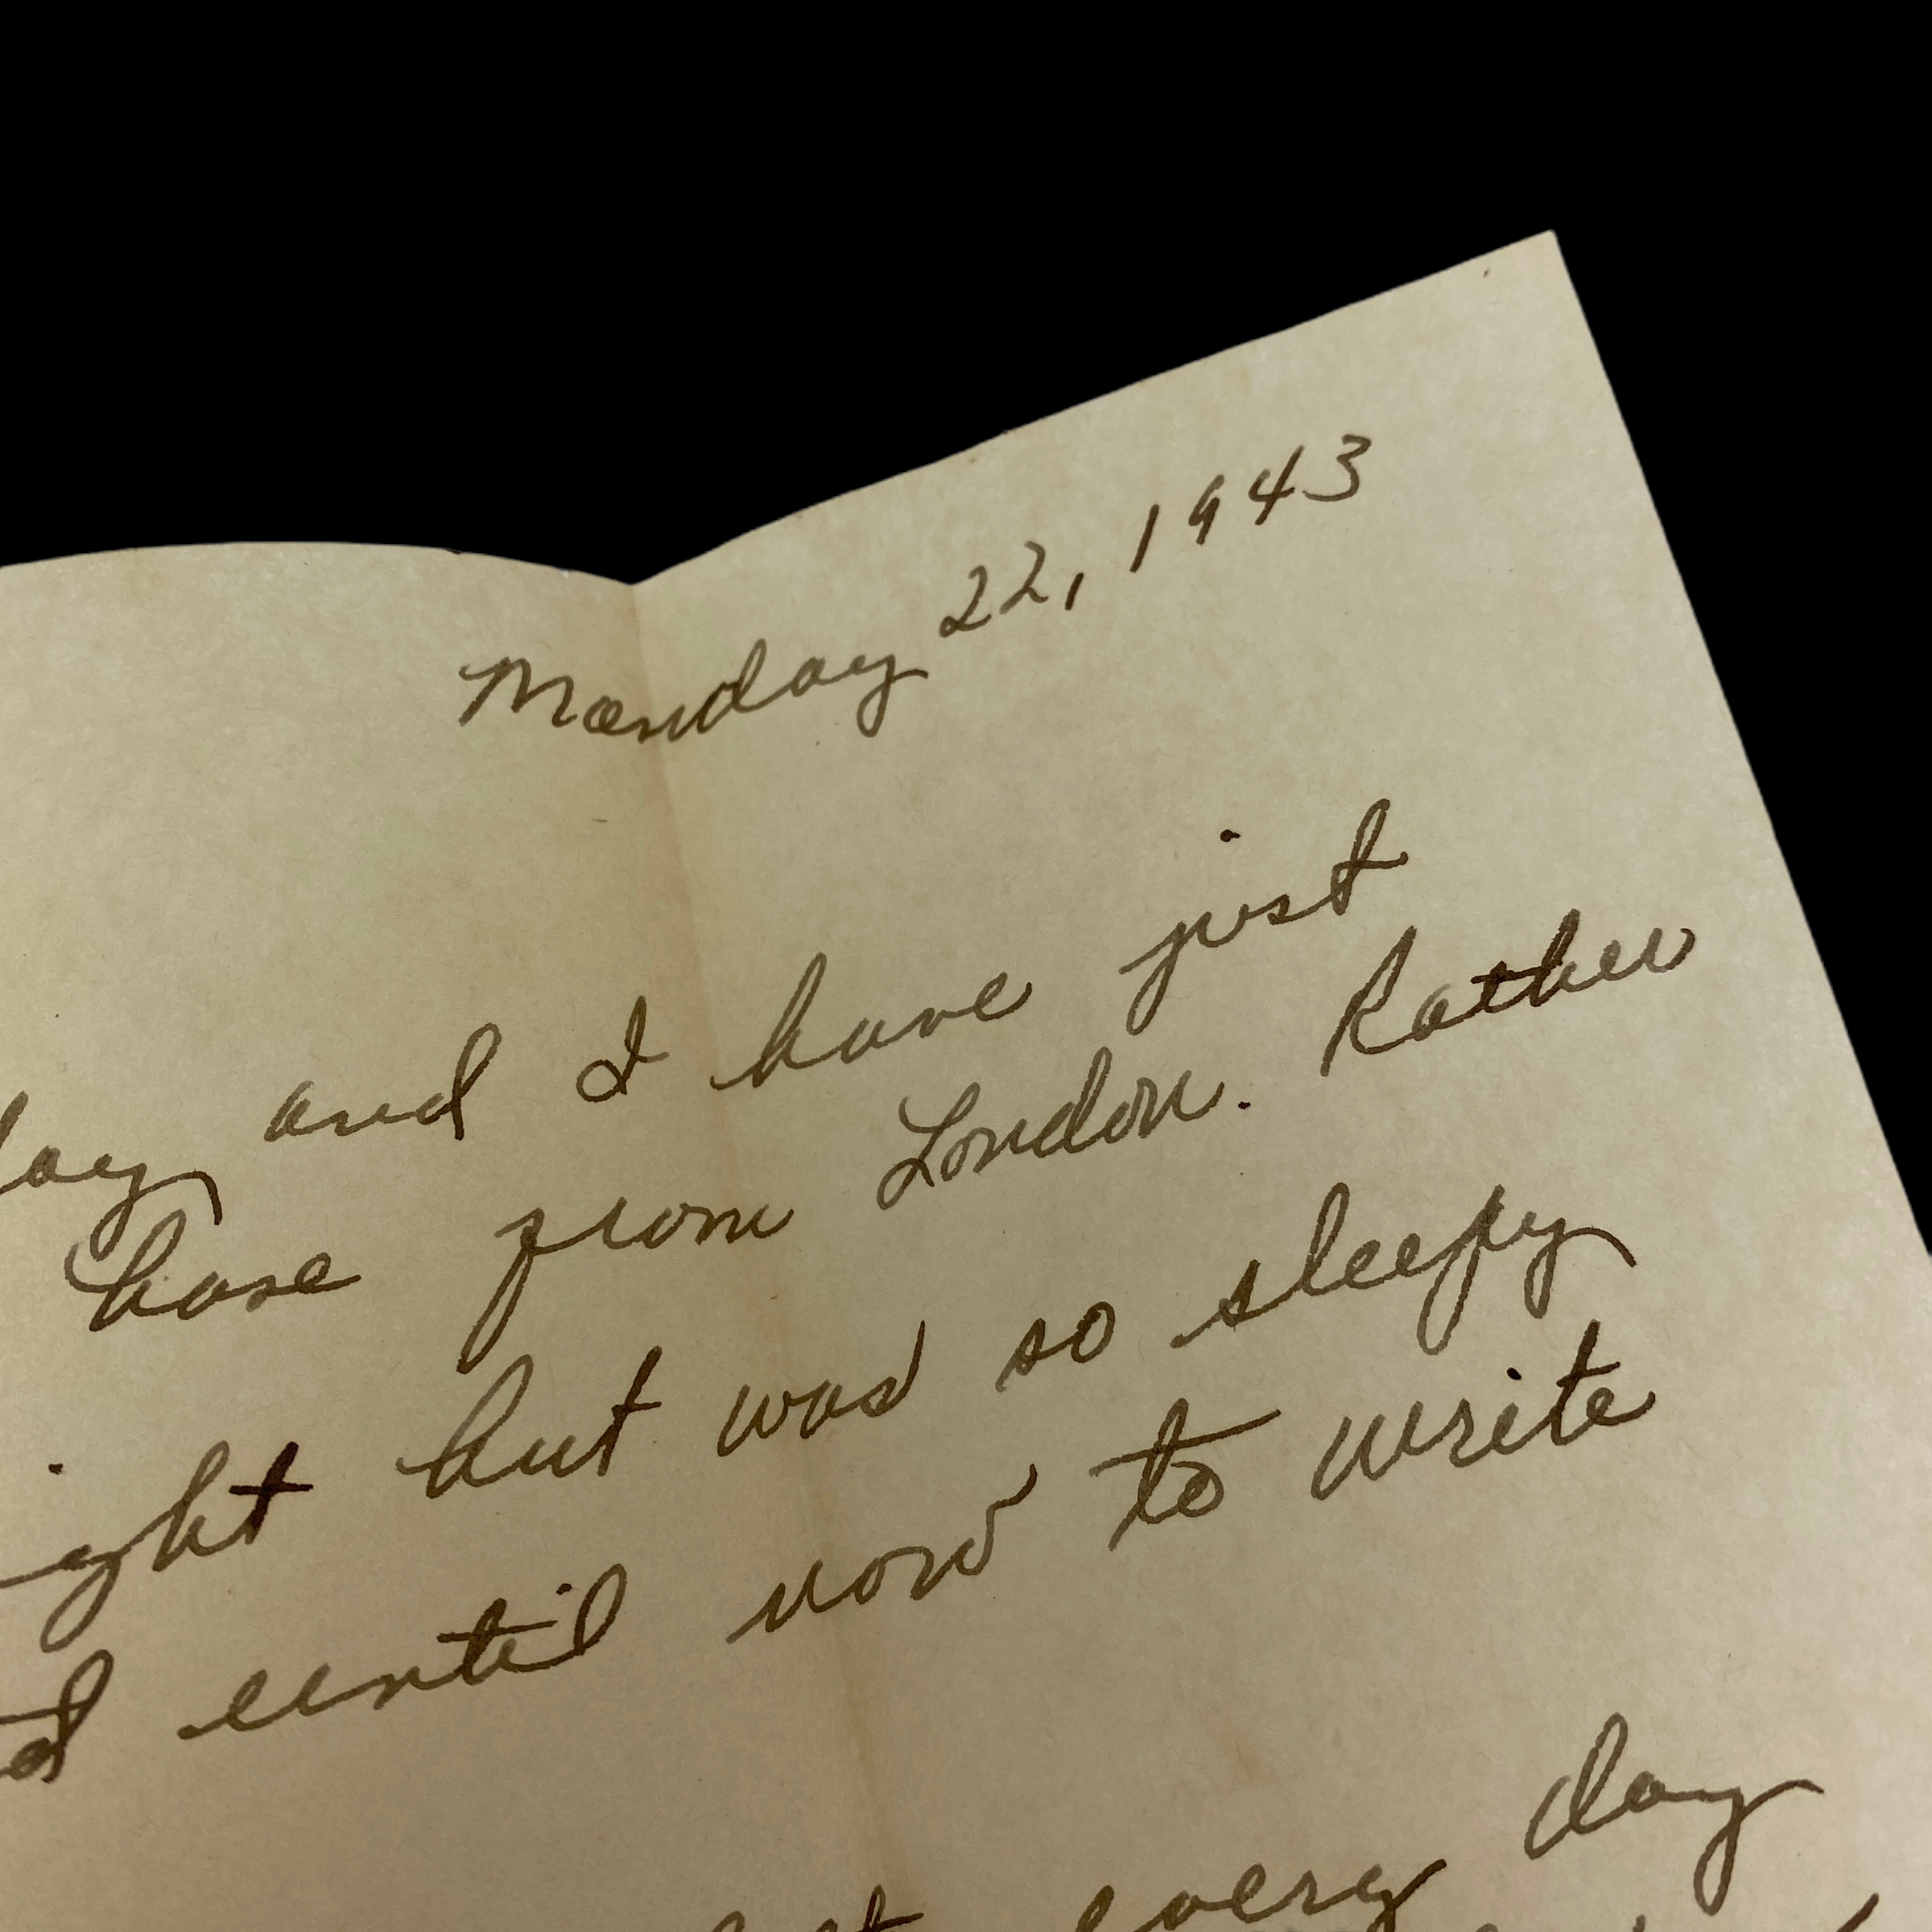 Monday 22, 1943
day and I have just
base from London. Rather
ight but was so sleepy
d until now to write
every day